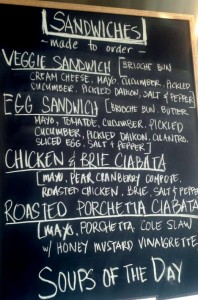 SANDWICHES
- made to order -
VEGGIE SANDWICH [BRIOCHE BUN
CREAM CHEESE, MAYO, CUCUMBER, PICKLED
CUCUMBER, PICKLED DAIKON, SALT & PEPPER]
EGG SANDWICH [BRIOCHE BUN, BUTTER
MAYO, TOMATOE, CUCUMBER, PICKLED
CUCUMBER, PICKLED DAIKON, CILANTRO,
SLICED EGG, SALT & PEPPER]
CHICKEN & BRIE CIABATA
[MAYO, PEAR CRANBERRY COMPOTE,
ROASTED CHICKEN, BRIE, SALT & PEPPER
ROASTED PORCHETTA CIABATA
[MAYO, PORCHETTA, COLE SLAW
W/ HONEY MUSTARD VINAIGRETTE
SOUPS OF THE DAY